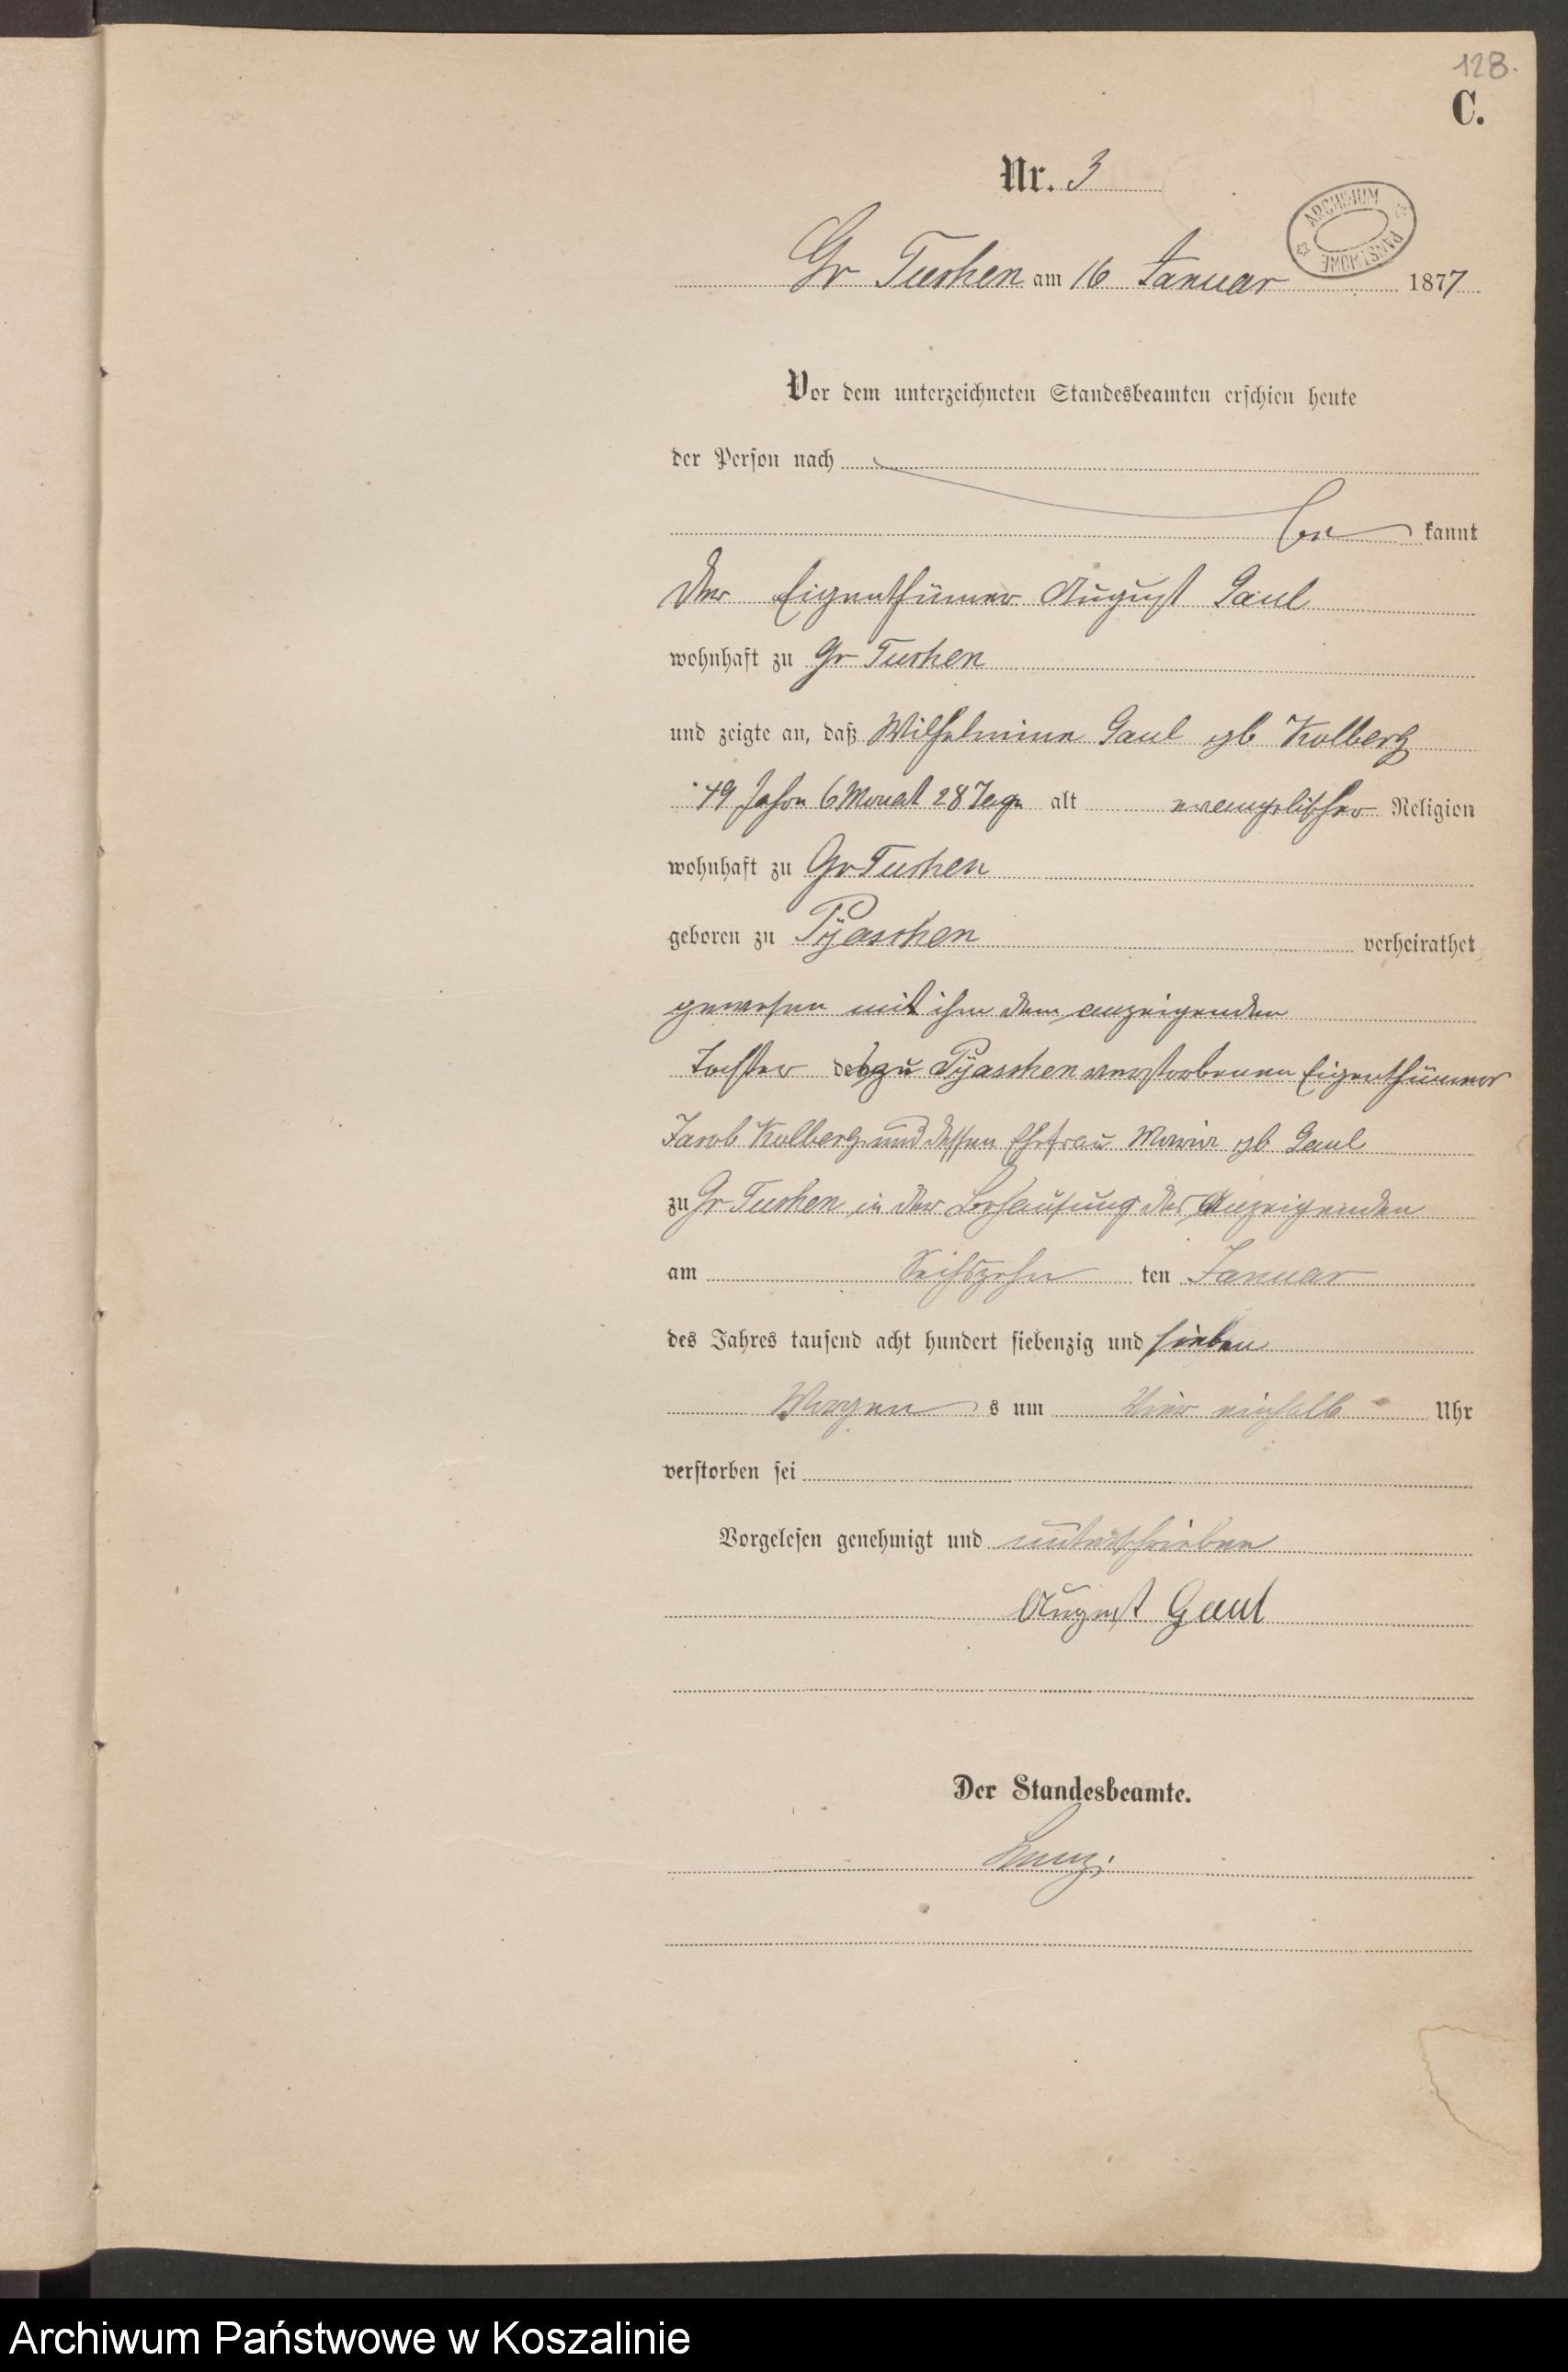 128.
C.
Nr. 3
ARCHIWUM PAŃSTWOWE
Gr Tuchen am 16 Januar 1877
Vor dem unterzeichneten Standesbeamten erschien heute
der Person nach
be kannt
der Eigenthümer August Gaul
wohnhaft zu Gr Tuchen
und zeigte an, daß Wilhelmine Gaul gb Kolberg
49 Jahre 6 Monat 28 Tage alt evangelischer Religion
wohnhaft zu Gr Tuchen
geboren zu Pyaschen verheirathet
gewesen mit ihm dem anzeigenden
Tochter des zu Pyaschen verstorbenen Eigenthümer
Jacob Kolberg und dessen Ehefrau Maria gb Gaul
zu Gr Tuchen in der Behausung des Anzeigenden
am Sechszehn ten Januar
des Jahres tausend acht hundert siebenzig und sieben
Morgen s um Vier einhalb Uhr
verstorben sei
Vorgelesen genehmigt und unterschrieben
August Gaul
Der Standesbeamte.
Archiwum Państwowe w Koszalinie